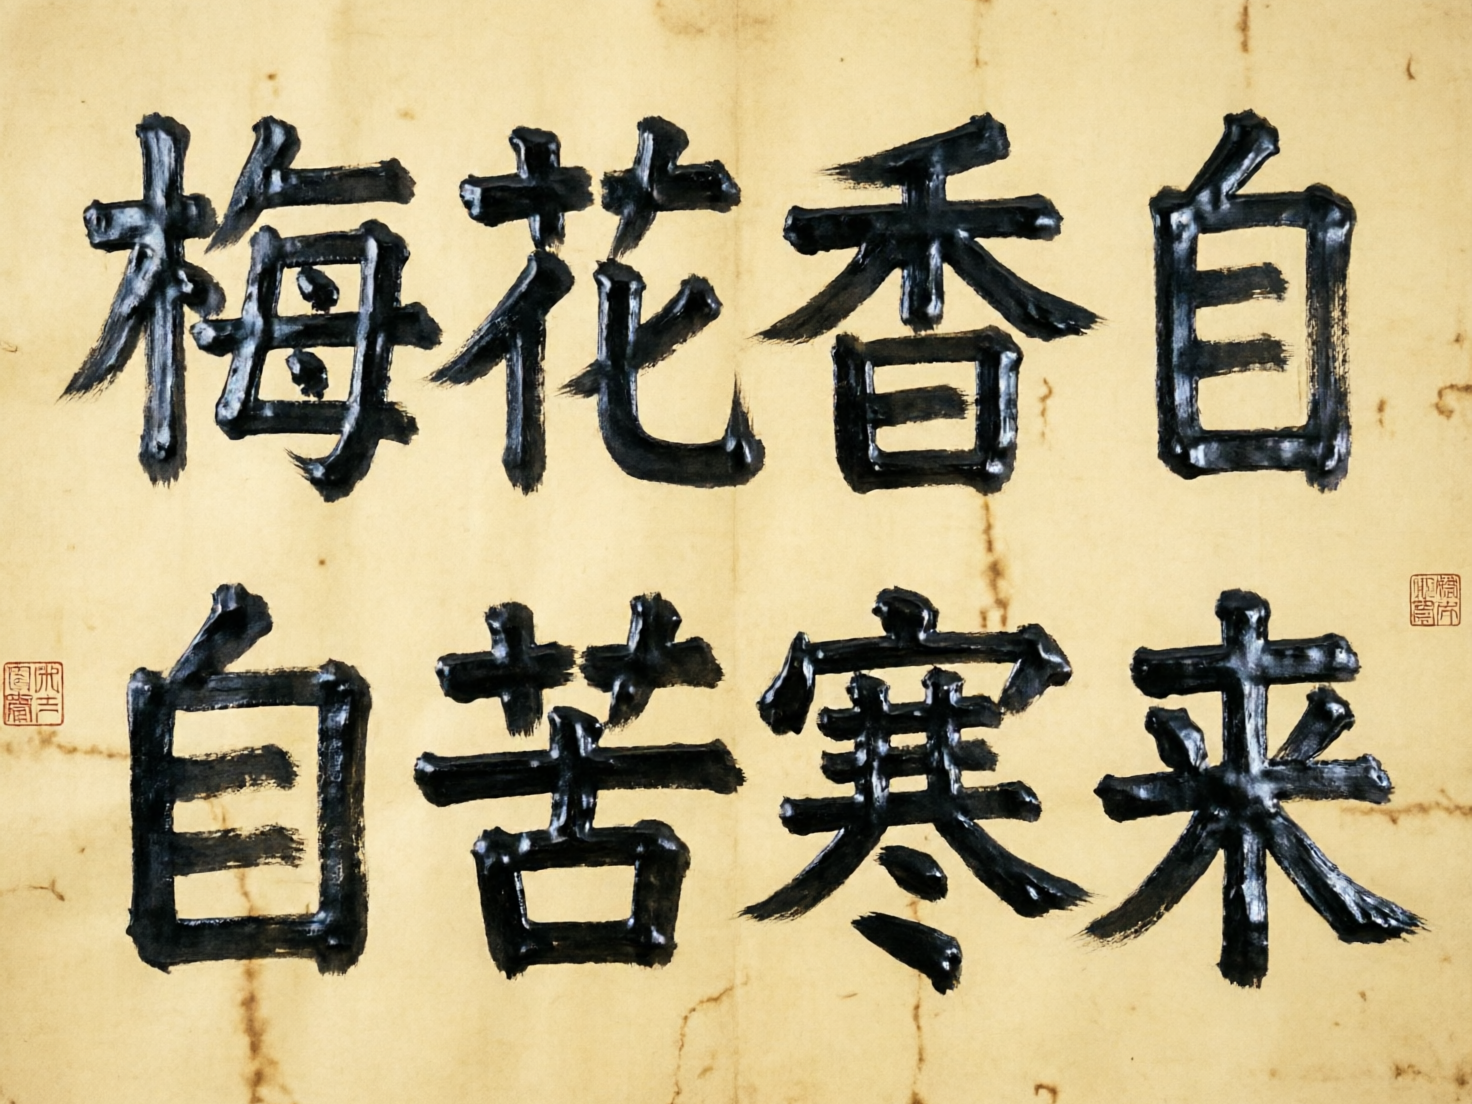 梅花香自
自苦寒来